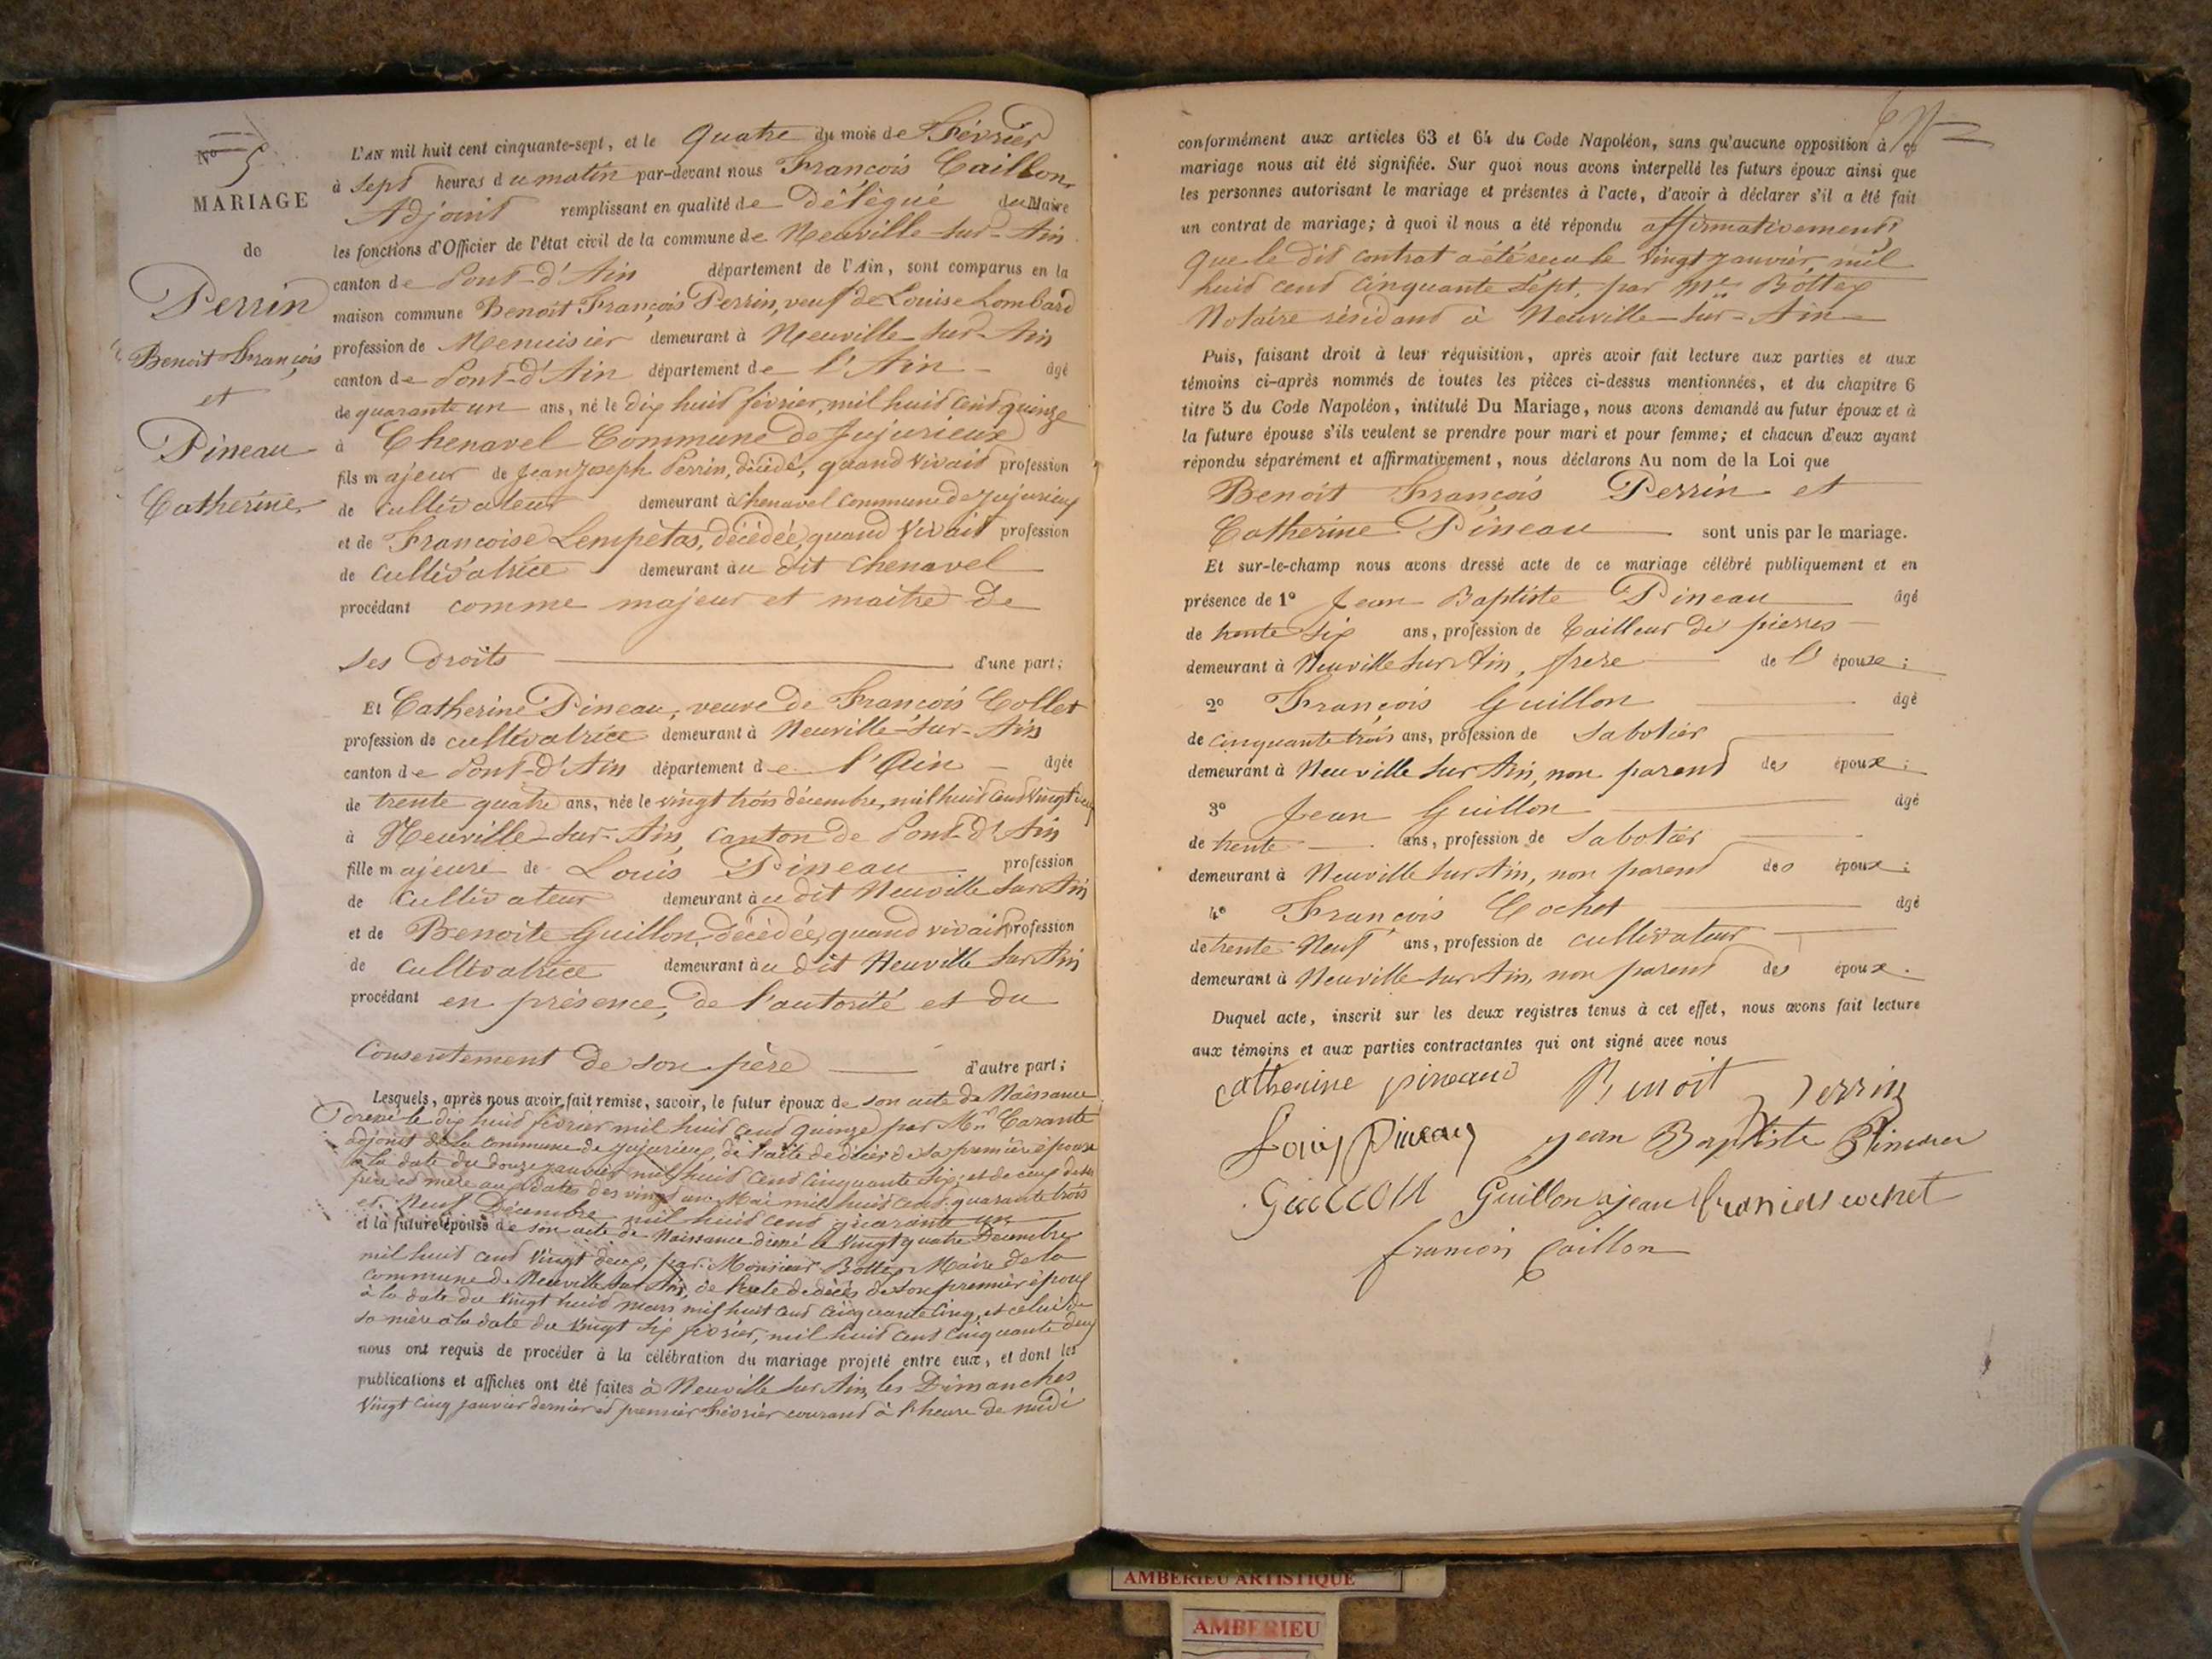 Nº 5
MARIAGE
de
Perrin
Benoit François
et
Pineau
Catherine
L'AN mil huit cent cinquante-sept, et le Quatre du mois de Février
à Sept heures du matin par-devant nous François Caillon,
Adjoint remplissant en qualité de Délégué du Maire
les fonctions d'Officier de l'état civil de la commune de Neuville-sur-Ain
canton de Pont-d'Ain département de l'Ain, sont comparus en la
maison commune Benoit François Perrin, veuf de Louise Lombard
profession de Menuisier demeurant à Neuville-sur-Ain
canton de Pont-d'Ain département de l'Ain âgé
de quarante un ans, né le dix huit février, mil huit cent quinze
à Chenavel Commune de Jujurieux
fils majeur de Jean Joseph Perrin, décédé, quand vivait profession
de cultivateur demeurant à Chenavel commune de Jujurieux
et de Francoise Lempétas, décédée, quand vivait profession
de cultivatrice demeurant au dit Chenavel
procédant comme majeur et maitre de
ses droits d'une part;
Et Catherine Pineau, veuve de François Collet
profession de cultivatrice demeurant à Neuville-sur-Ain
canton de Pont-d'Ain département de l'Ain âgée
de trente quatre ans, née le vingt trois décembre, mil huit cent vingt deux
à Neuville-sur-Ain, canton de Pont-d'Ain
fille majeure de Louis Pineau profession
de cultivateur demeurant au dit Neuville sur Ain
et de Benoite Guillon, décédée, quand vivait profession
de cultivatrice demeurant au dit Neuville sur Ain
procédant en présence, de l'autorité et du
Consentement de son père d'autre part;
Lesquels, après nous avoir fait remise, savoir, le futur époux de son acte de Naissance
Dressé le dix huit février mil huit cent quinze par Mr Carante
adjoint de la commune de Jujurieux, de l'acte de décès de sa première épouse
à la date du douze janvier mil huit cent cinquante six, et de ceux de ses
père et mère aux dates des vingt un Mai mil huit cent quarante trois
et Neuf Décembre mil huit cent quarante un
et la future épouse de son acte de Naissance dressé le vingt quatre Décembre
mil huit cent vingt deux, par Monsieur Bottex Maire de la
commune de Neuville sur Ain, de l'acte de décès de son premier époux
à la date du vingt huit mars mil huit cent cinquante cinq, et celui de
sa mère à la date du vingt six février, mil huit cent cinquante deux
nous ont requis de procéder à la célébration du mariage projeté entre eux, et dont les
publications et affiches ont été faites à Neuville sur Ain, les Dimanches
vingt cinq janvier dernier et premier février courant à l'heure de midi
conformément aux articles 63 et 64 du Code Napoléon, sans qu'aucune opposition à ce
mariage nous ait été signifiée. Sur quoi nous avons interpellé les futurs époux ainsi que
les personnes autorisant le mariage et présentes à l'acte, d'avoir à déclarer s'il a été fait
un contrat de mariage; à quoi il nous a été répondu affirmativement,
que le dit contrat a été reçu le vingt janvier, mil
huit cent cinquante sept, par Me Bottex
Notaire résidant à Neuville-sur-Ain
Puis, faisant droit à leur réquisition, après avoir fait lecture aux parties et aux
témoins ci-après nommés de toutes les pièces ci-dessus mentionnées, et du chapitre 6
titre 5 du Code Napoléon, intitulé Du Mariage, nous avons demandé au futur époux et à
la future épouse s'ils veulent se prendre pour mari et pour femme; et chacun d'eux ayant
répondu séparément et affirmativement, nous déclarons Au nom de la Loi que
Benoit François Perrin et
Catherine Pineau sont unis par le mariage.
Et sur-le-champ nous avons dressé acte de ce mariage célébré publiquement et en
présence de 1º Jean Baptiste Pineau âgé
de trente six ans, profession de Tailleur de pierres
demeurant à Neuville sur Ain, frere de l' épouse;
2º François Guillon âgé
de cinquante trois ans, profession de Sabotier
demeurant à Neuville sur Ain, non parent des époux;
3º Jean Guillon âgé
de trente ans, profession de Sabotier
demeurant à Neuville sur Ain, non parent des époux;
4º François Cochet âgé
de trente Neuf ans, profession de cultivateur
demeurant à Neuville-sur-Ain, non parent des époux.
Duquel acte, inscrit sur les deux registres tenus à cet effet, nous avons fait lecture
aux témoins et aux parties contractantes qui ont signé avec nous
catherine pineaud Benoit Perrin
Louis Pineau jean Baptiste Pineau
Guillon Guillon jean francois cochet
francois Caillon
AMBERIEU ARTISTIQUE
AMBERIEU